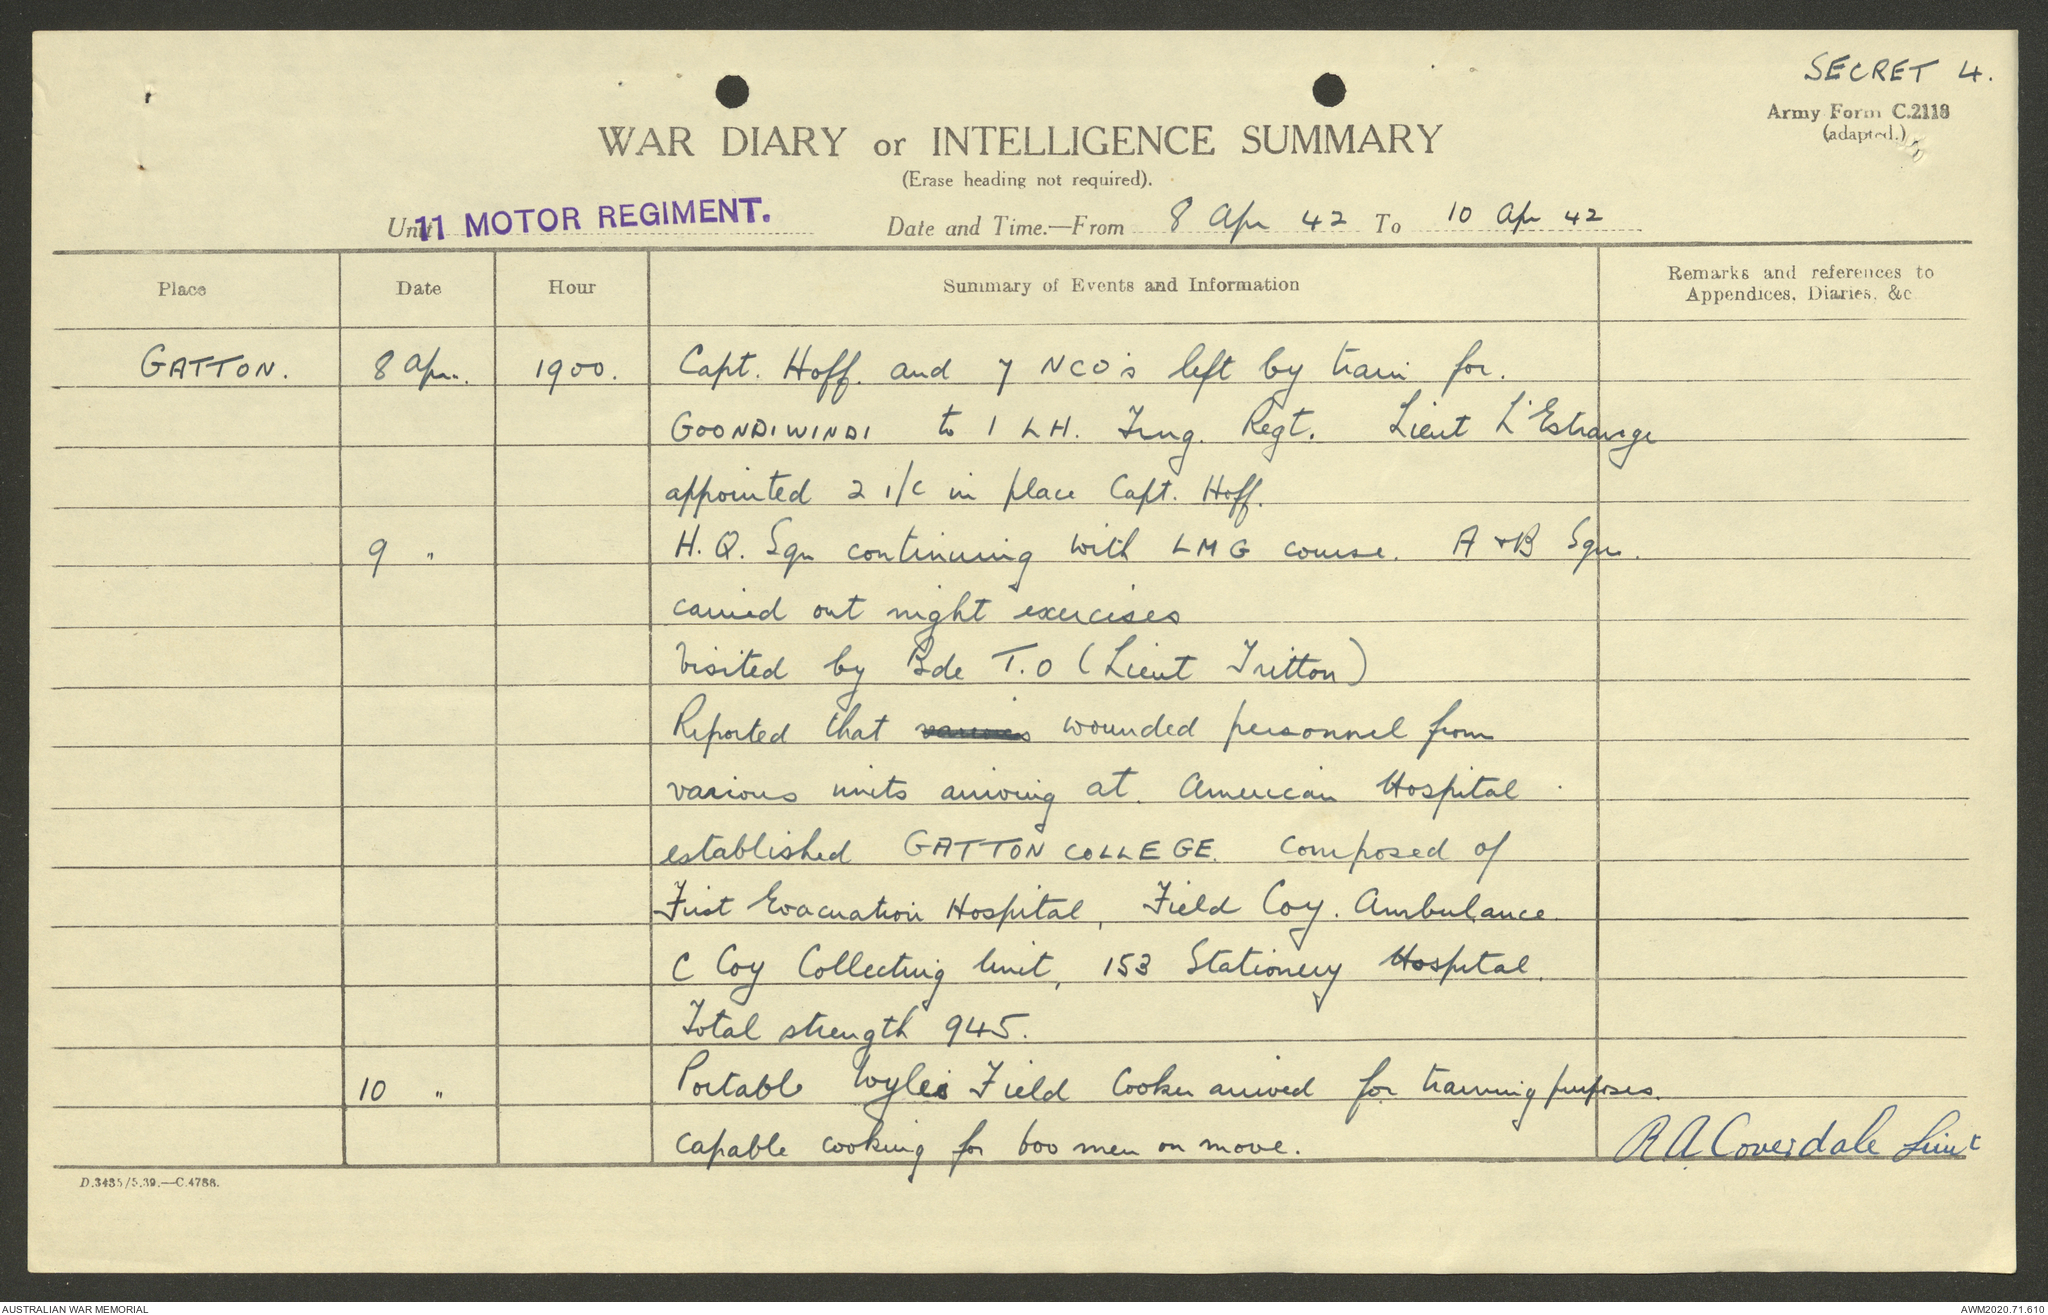 SECRET 4.
Army Form C.2118
(adapted.)
WAR DIARY or INTELLIGENCE SUMMARY
(Erase heading not required).
Unit 11 MOTOR REGIMENT. Date and Time.—From 8 Apr 42 To 10 Apr 42
Place Date Hour Summary of Events and Information Remarks and references to
Appendices, Diaries, &c
GATTON. 8 Apr. 1900. Capt. Hoff. and 7 NCO's left by train for.
GOONDIWINDI to 1 LH. Trng. Regt. Lieut L'Estrange
appointed 2 i/c in place Capt. Hoff.
9 " H.Q. Sqn continuing with LMG course. A & B Sqns.
carried out night exercises
Visited by Bde T.O (Lieut Tritton)
Reported that various wounded personnel from
various units arriving at. American Hospital
established GATTON COLLEGE. composed of
First Evacuation Hospital, Field Coy. Ambulance
C Coy Collecting Unit, 153 Stationery Hospital.
Total strength 945.
10 " Portable Wyles Field Cooker arrived for training purposes.
capable cooking for 600 men on move.
R A Coverdale Lieut
D.3485/5.39.—C.4788.
AUSTRALIAN WAR MEMORIAL AWM2020.71.610